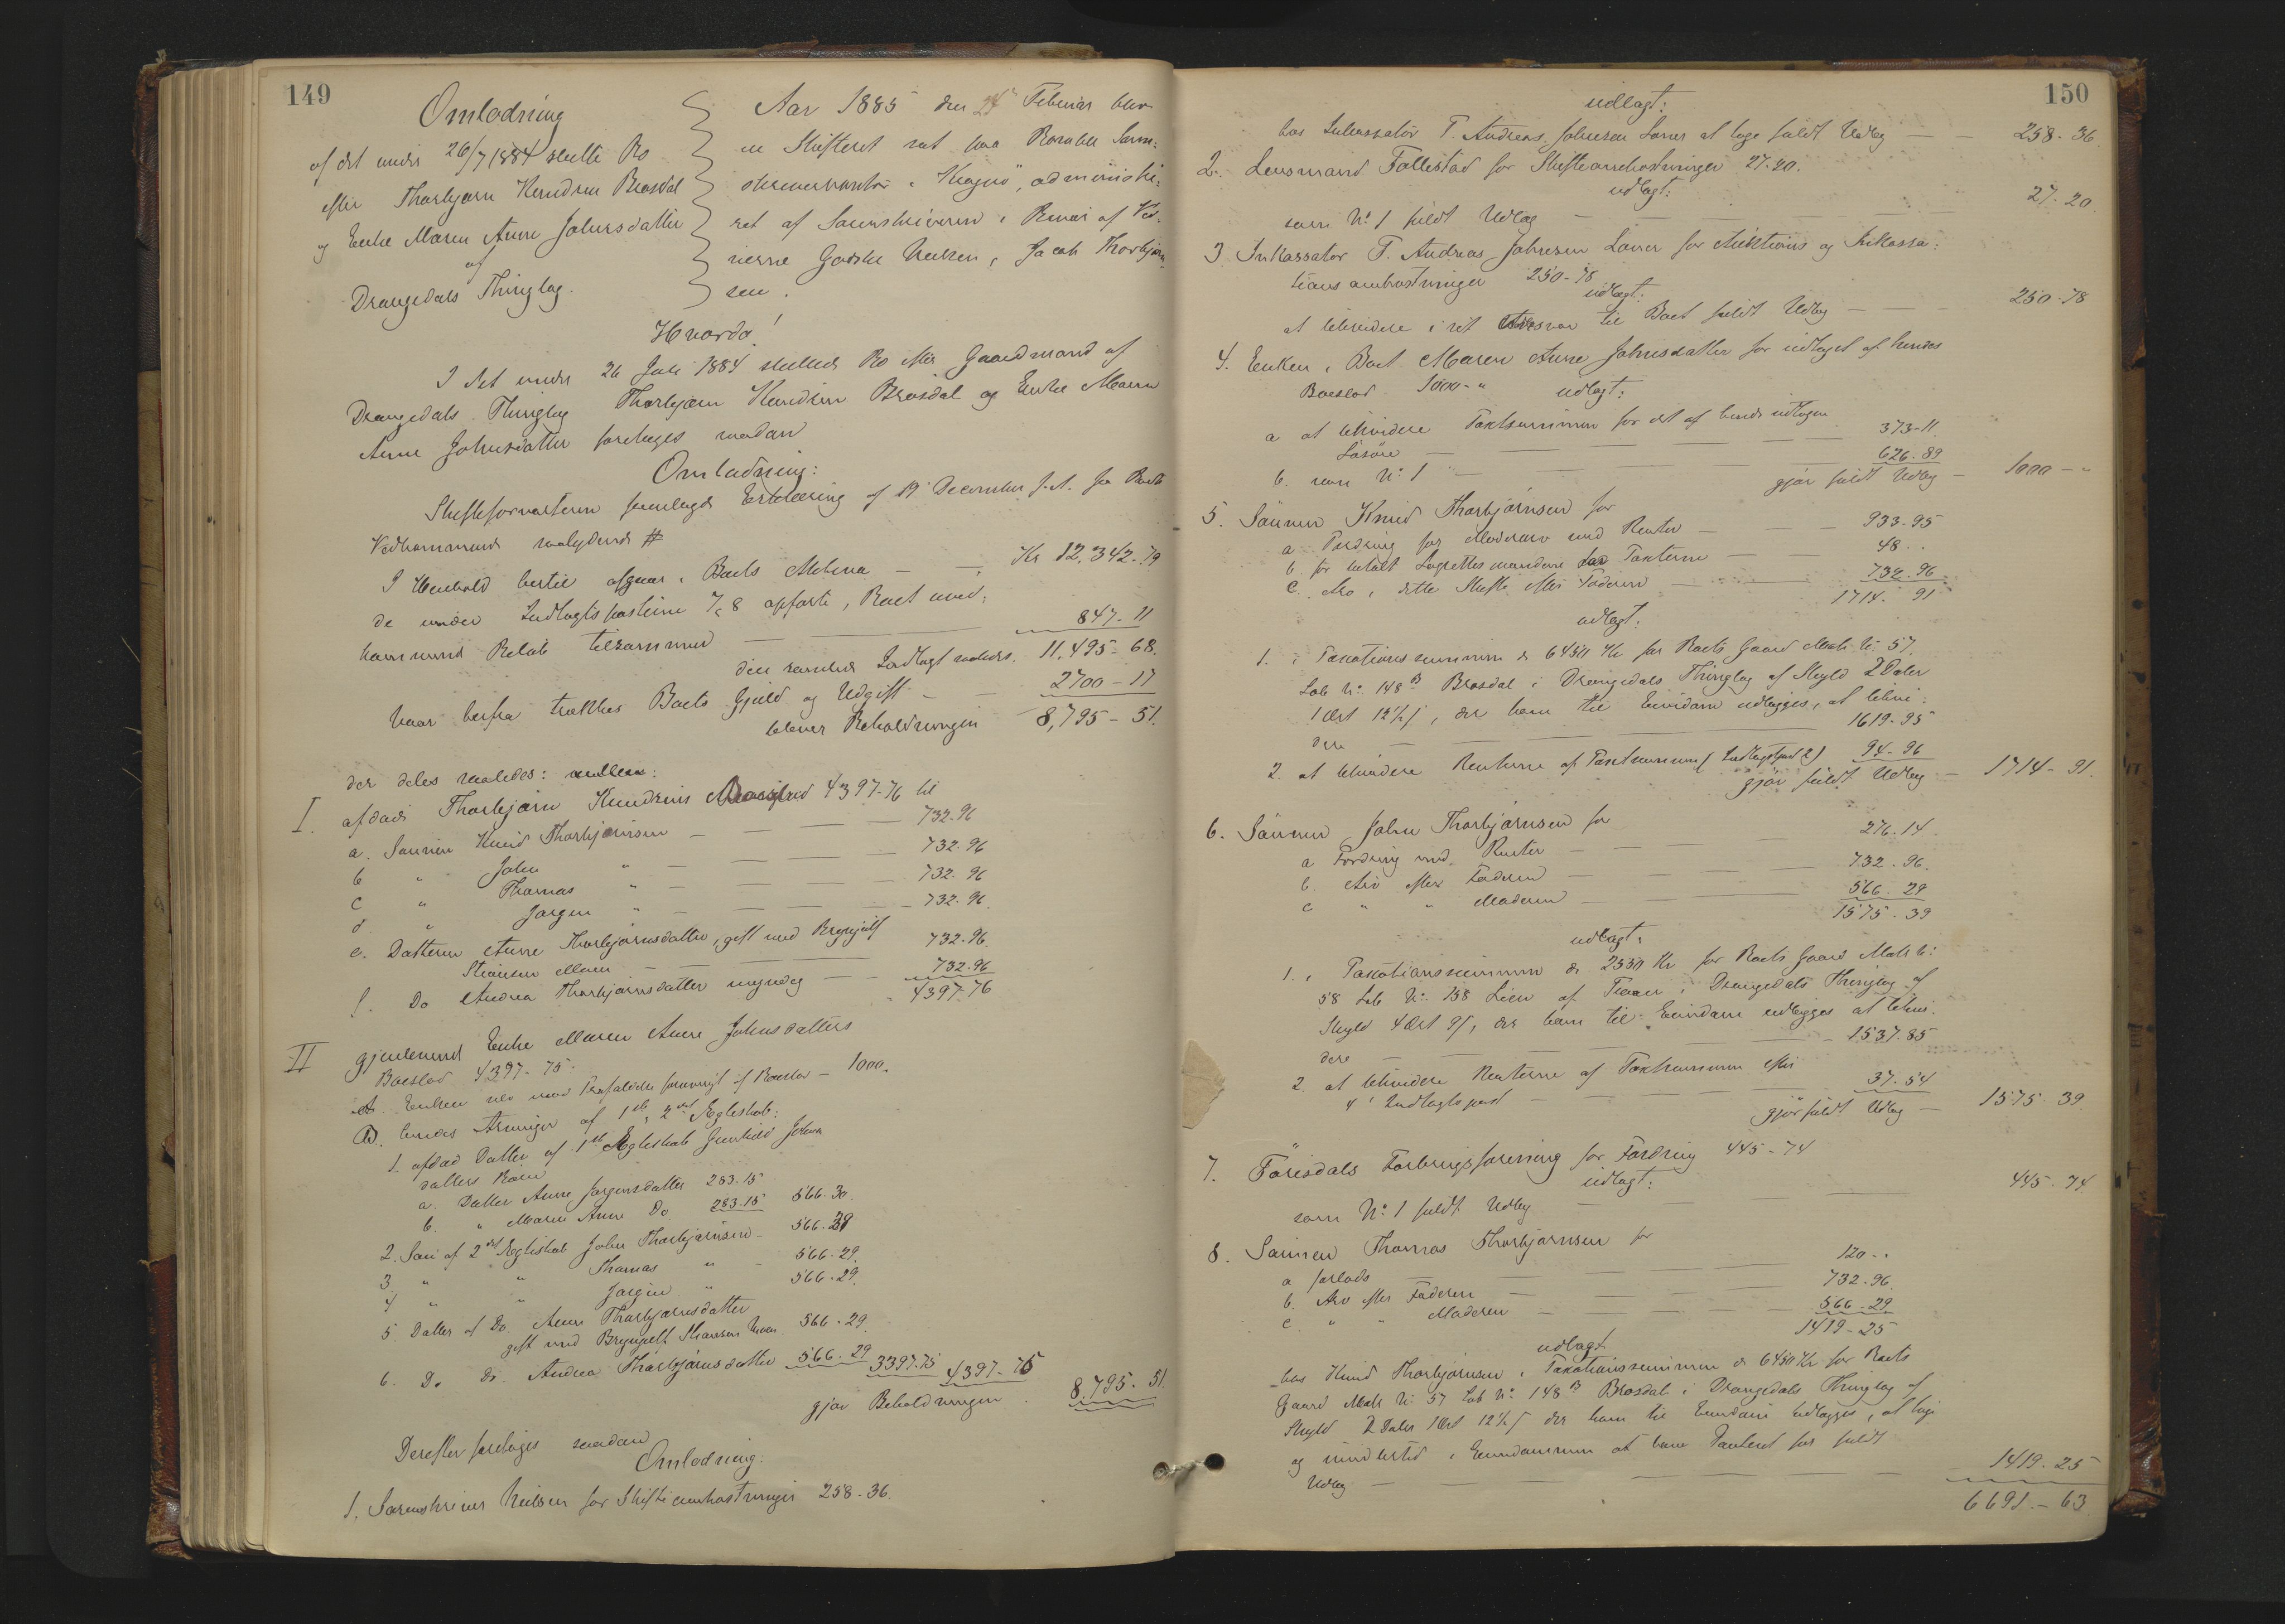 149
Omlodning
af det under 26/7 1884 sluttede Bo
efter Thorbjørn Knudsen Brøsdal
og Enke Maren Anne Johnsdatter
af
Drangedals Thinglag.
Aar 1885 den 24 Februar blev
en Skifteret sat paa Soren-
skriverkontor i Kragerø, administre-
ret af Sorenskriveren i Overvær af Vid-
nerne Nielsen, Jacob Thorbjørn-
sen.
Hvorda!
I det under 26 Juli 1884 sluttede Bo efter Gaardmand af
Drangedals Thinglag Thorbjørn Knudsen Brøsdal og Enke Maren
Anne Johnsdatter foretages saadan
Omlodning:
Skifteforvalteren fremlagde Erklæring af 19 December f. A. fra Boets
Vedkommende saalydende #
I Henhold hertil afgaar i Boets Aktiva — Kr 12,342-79
de under Indtægtsposterne 7 & 8 opførte, Boet uved-
kommende Beløb tilsammen — 847-11
den samlede Indtægt saaledes. 11,495-68.
hvor herfra trækkes Boets Gjæld og Udgift — 2700-17
bliver Beholdningen 8,795-51.
der deles saaledes: mellem:
I. afdøde Thorbjørn Knudsens Boeslod 4397-76 til
a. Sønnen Knud Thorbjørnsen — 732-96
b " John " — 732-96
c " Thomas " — 732-96
d. " Jørgen " — 732-96.
e. Datteren Anne Thorbjørnsdatter, gift med Brynjulf
Stiansen Moen — 732-96.
f. Do Andrea Thorbjørnsdatter myndig — 732-96
4397-76
II gjenlevende Enke Maren Anne Johnsdatters
Boeslod 4397-75.
A. Enken selv forlods af Boeslod — 1000.
B. hendes Arvinger af 1ste & 2det Ægteskab:
1. afdød Datter af 1ste Ægteskab Gunhild Johns
datters Børn
a. Datter Anne Jørgensdatter 283-15
b. " Maren Anne Do 283-15 566-30.
2. Søn af 2det Ægteskab John Thorbjørnsen — 566-29
3 " " Thomas " — 566-29.
4 " " Jørgen " 566-29.
5. Datter af Do. Anne Thorbjørnsdatter
gift med Brynjulf Stiansen Moen 566-29.
6. Do Do. Andrea Thorbjørnsdatter 566-29 3397-75 4397-75
gjør Beholdningen 8,795-51.
Derefter foretages saadan
Omlodning:
1. Sorenskriver Nielsen for Skifteomkostninger 258-36.
150
udlagt:
hos Inkassator T. Andreas Johnsen at tage fuldt Udlæg — 258-36
2. Lensmand Tollestad for Skifteomkostninger 27-20.
udlagt:
som No 1 fuldt Udlæg — 27-20.
3 Inkassator T. Andreas Johnsen for Auktions og Inkassa-
tions omkostninger 250-78
udlagt:
at likvidere i sit Ansvar til Boet fuldt Udlæg — 250-78
4. Enken i Boet Maren Anne Johnsdatter for udtaget af hendes
Boeslod 1000-" udlagt:
a at likvidere Taxtsummen for det af hende udtagne
Løsøre — 373-11
b. som No 1 — 626-89
gjør fuldt Udlæg — 1000-"
5. Sønnen Knud Thorbjørnsen for
a. Fordring for Mødrearv med Renter — 933-95
b. for betalt Lagrettesmændene for Taxterne — 48..
c. Arv i dette Skifte efter Faderen — 732-96
1714-91
udlagt:
1. i Taxationssummen Kr 6450 Kr for Boets Gaard Matr. No 57.
Løb No 148 B Brøsdal i Drangedals Thinglag af Skyld 2 Daler
1 Ort 12½ ß, der ham til Eiendom udlægges, at likvi-
dere — 1619-95
2. at likvidere Renterne af Taxtsummen (Indtægtspost 2) 94-96
gjør fuldt Udlæg — 1714-91.
6. Sønnen John Thorbjørnsen for
a Fordring med Renter — 276-14
b. Arv efter Faderen — 732-96.
c " " Moderen — 566-29
1575-39
udlagt:
1. i Taxationssummen Kr 2550 Kr for Boets Gaard Matr No
58 Løb No 158 Lien af i Drangedals Thinglag af
Skyld 4 Ort 9 ß, der ham til Eiendom udlægges at likvi-
dere — 1537-85
2. at likvidere Renterne af Taxtsummen efter
4' Indtægts post — 37-54
gjør fuldt Udlæg — 1575-39
7. Tørisdals Forbrugsforening for Fordring 445-74
udlagt:
som No 1 fuldt Udlæg — 445-74
8. Sønnen Thomas Thorbjørnsen for
a forlods — 120..
b. Arv efter Faderen — 732-96.
c. " " Moderen — 566-29
1419-25
udlagt
hos Knud Thorbjørnsen i Taxationssummen Kr 6450 Kr for Boets
Gaard Matr No 57 Løb No 148 B Brøsdal i Drangedals Thinglag af
Skyld 2 Daler 1 Ort 12½ ß der ham til Eiendom udlægges, at tage
og imidlertid i Eiendommen at have Panteret for fuldt
Udlæg — 1419-25
6691-63